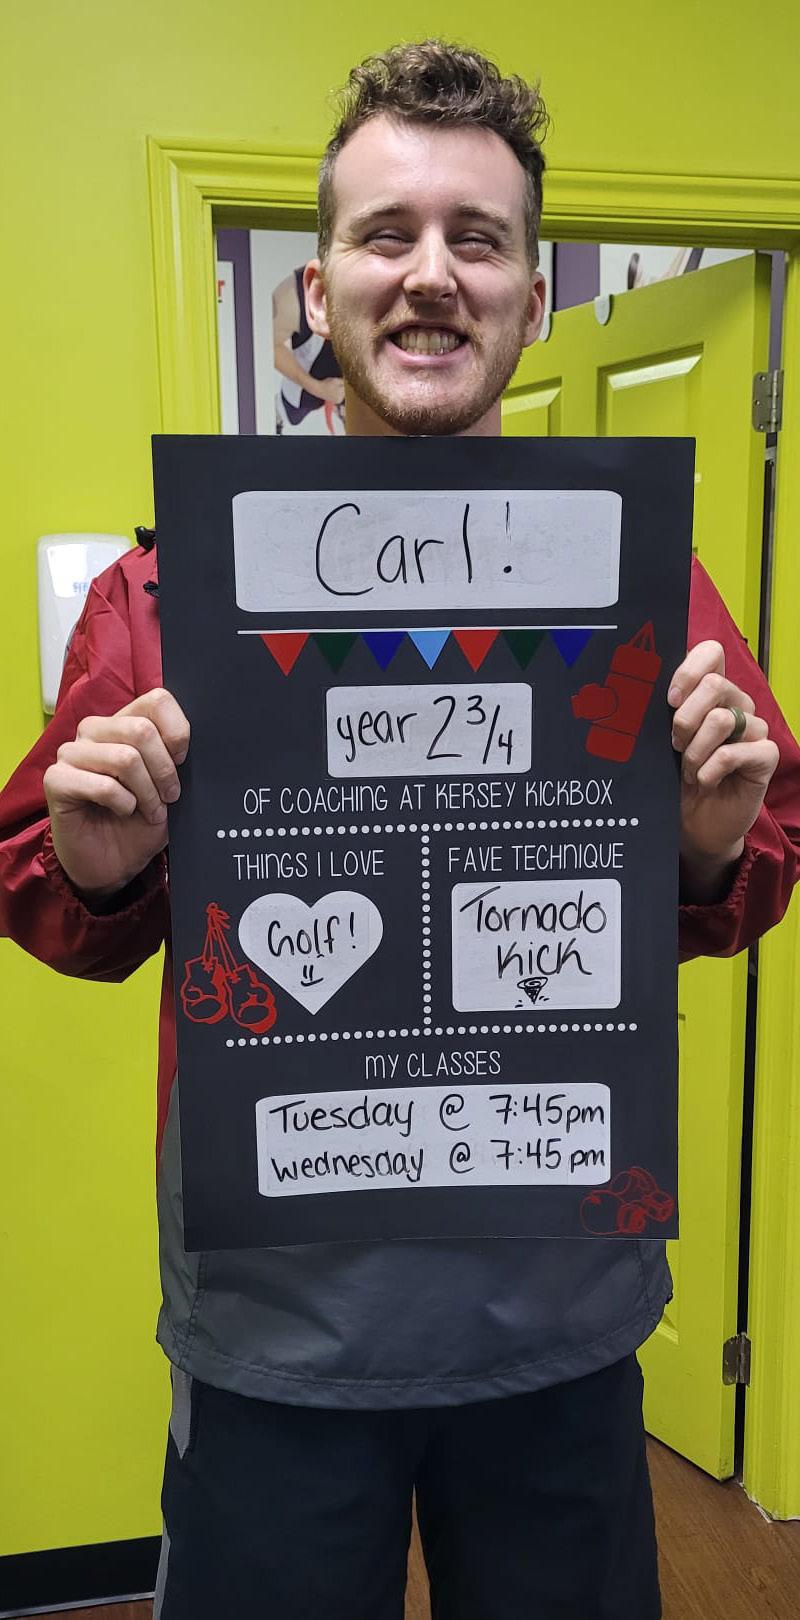 Carl!
year 2 3/4
OF COACHING AT KERSEY KICKBOX
THINGS I LOVE
Golf!
FAVE TECHNIQUE
Tornado
Kick
MY CLASSES
Tuesday @ 7:45pm
Wednesday @ 7:45 pm